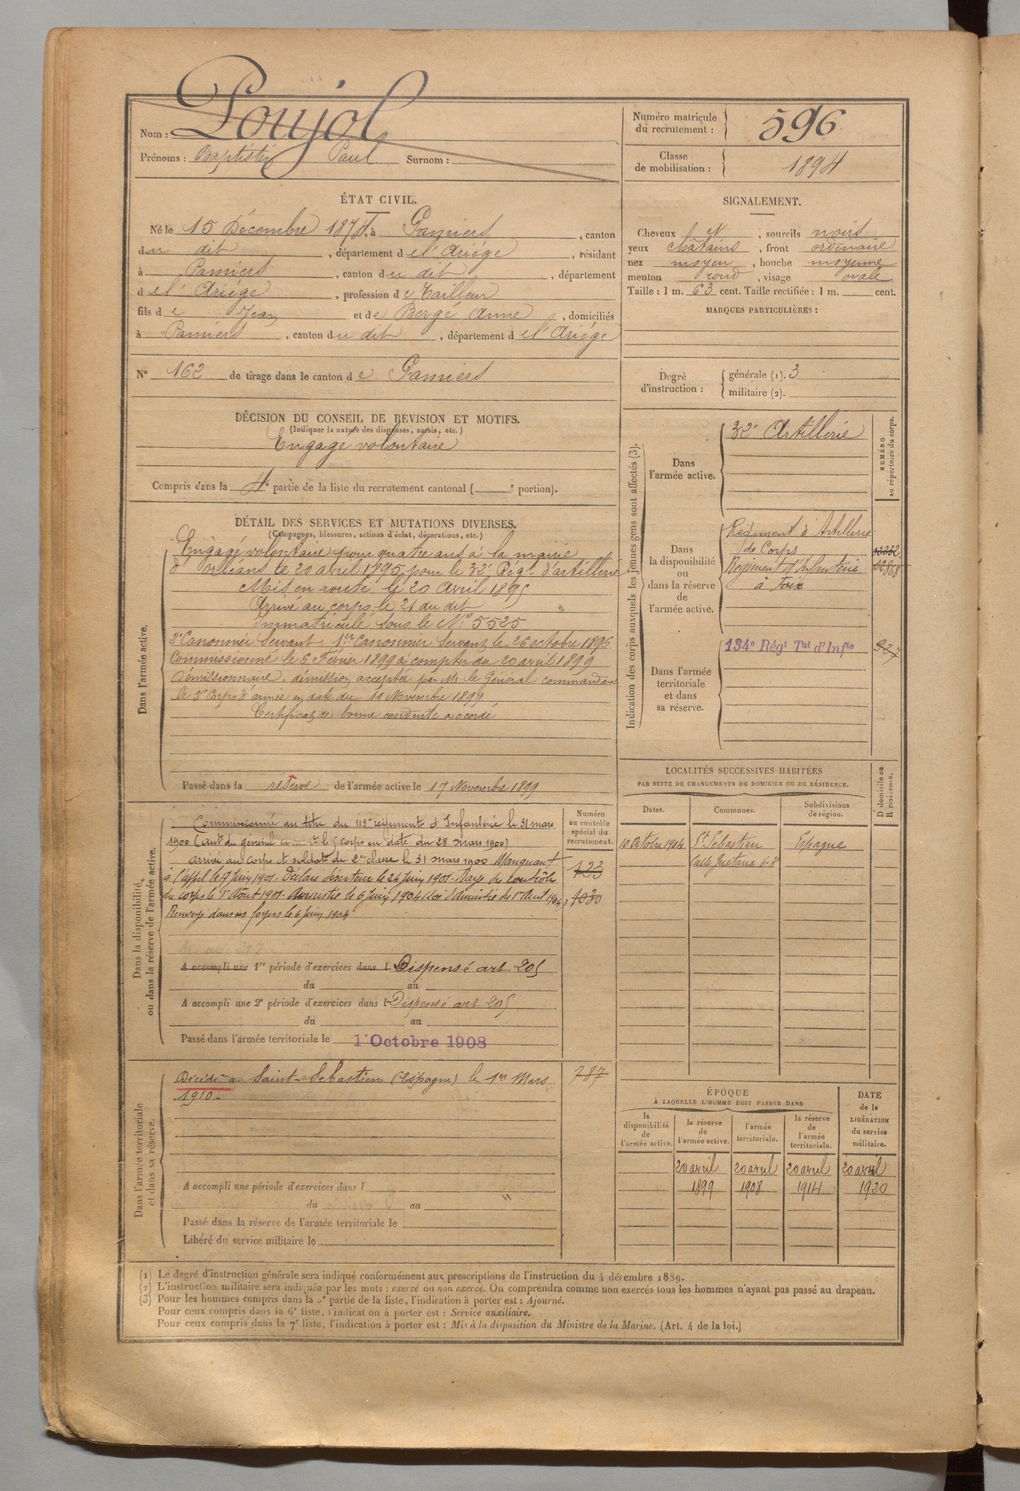 Nom : Poujol
Prénoms : Baptistin Paul Surnom :
Numéro matricule du recrutement : 596
Classe de mobilisation : 1894
ÉTAT CIVIL.
Né le 15 Décembre 1874, à Pamiers, canton
du dit, département de l'Ariège, résidant
à Pamiers, canton du dit, département
de l'Ariège, profession de Tailleur
fils de Jean et de Bergé Anne, domiciliés
à Pamiers, canton du dit, département de l'Ariège
N° 162 de tirage dans le canton de Pamiers
SIGNALEMENT.
Cheveux et, sourcils noirs
yeux châtains, front ordinaire
nez moyen, bouche moyenne
menton rond, visage ovale
Taille : 1 m. 63 cent. Taille rectifiée : 1 m. cent.
MARQUES PARTICULIÈRES :
Degré d'instruction : générale (1). 3
militaire (2).
DÉCISION DU CONSEIL DE REVISION ET MOTIFS.
(Indiquer la nature des dispenses, sursis, etc.)
Engagé volontaire
Compris dans la 4e partie de la liste du recrutement cantonal ( e portion).
DÉTAIL DES SERVICES ET MUTATIONS DIVERSES.
(Campagnes, blessures, actions d'éclat, décorations, etc.)
Dans l'armée active.
Engagé volontaire pour quatre ans à la mairie
d'Orléans le 20 avril 1895 pour le 32e Régt d'artillerie
Mis en route le 20 avril 1895
Arrivé au corps le 21 du dit
Immatriculé sous le N° 5525
2e Canonnier Servant. 1er Canonnier Servant le 26 octobre 1896
Commissionné le 5 Février 1899 à compter du 20 avril 1899
Démissionnaire, démission acceptée par Mr le Général commandant
le 5e Corps d'armée en date du 10 Novembre 1899
Certificat de bonne conduite accordé
Passé dans la réserve de l'armée active le 17 Novembre 1899
Indication des corps auxquels les jeunes gens sont affectés (3).
NUMÉRO au répertoire du corps.
Dans l'armée active.
32e Artillerie
Dans la disponibilité ou dans la réserve de l'armée active.
Régiment d'Artillerie
de Corps
Régiment d'Infanterie
à Foix
Dans l'armée territoriale et dans sa réserve.
134e Régt Tal d'Infie
Dans la disponibilité ou dans la réserve de l'armée active.
Numéro au contrôle spécial du recrutement.
Commissionné au titre du 113e régiment d'Infanterie le 31 mars
1900 (aut. du général le 5 corps en date du 28 mars 1900)
arrivé au corps et soldat de 2e classe le 31 mars 1900 Manquant
à l'appel le 17 juin 1901. Déclaré déserteur le 24 juin 1901. Rayé du contrôle
du corps le 1er Août 1901. Amnistié le 6 juin 1904 (Loi d'Amnistie du 1er Avril 1904)
Renvoyé dans ses foyers le 6 juin 1904
123
1030
A accompli une 1re période d'exercices dans l Dispensé art. 205
du au
A accompli une 2e période d'exercices dans l Dispensé art 205
du au
Passé dans l'armée territoriale le 1 Octobre 1908
LOCALITÉS SUCCESSIVES HABITÉES
PAR SUITE DE CHANGEMENTS DE DOMICILE OU DE RÉSIDENCE.
Dates. Communes. Subdivisions de région. D domicile ou R résidence.
10 Octobre 1904 St Sébastien Espagne
Dans l'armée territoriale et dans sa réserve.
Décédé à Saint-Sébastien (Espagne) le 1er Mars
1910.
787
A accompli une période d'exercices dans l
du au
Passé dans la réserve de l'armée territoriale le
Libéré du service militaire le
ÉPOQUE
A LAQUELLE L'HOMME DOIT PASSER DANS
la disponibilité de l'armée active. la réserve de l'armée active. l'armée territoriale. la réserve de l'armée territoriale.
DATE de la LIBÉRATION du service militaire.
20 avril 20 avril 20 avril 20 avril
1899 1908 1914 1920
(1) Le degré d'instruction générale sera indiqué conformément aux prescriptions de l'instruction du 4 décembre 1889.
(2) L'instruction militaire sera indiquée par les mots : exercé ou non exercé. On comprendra comme non exercés tous les hommes n'ayant pas passé au drapeau.
(3) Pour les hommes compris dans la 5e partie de la liste, l'indication à porter est : Ajourné.
Pour ceux compris dans la 6e liste, l'indication à porter est : Service auxiliaire.
Pour ceux compris dans la 7e liste, l'indication à porter est : Mis à la disposition du Ministre de la Marine. (Art. 4 de la loi.)